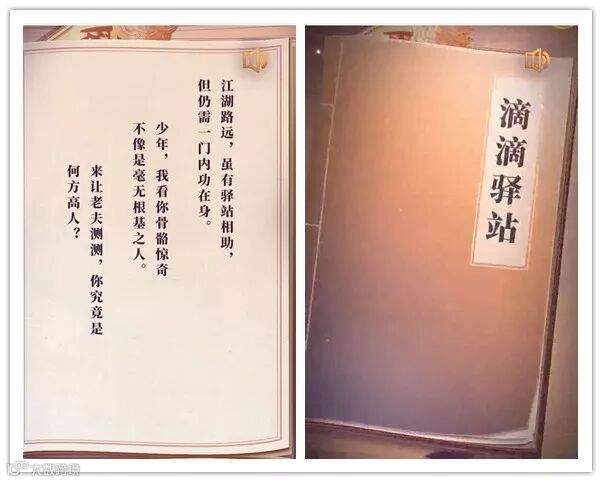 江湖路远，虽有驿站相助，
但仍需一门内功在身。
少年，我看你骨骼惊奇
不像是毫无根基之人。
来让老夫测测，你究竟是
何方高人？
滴滴驿站
大数跨境